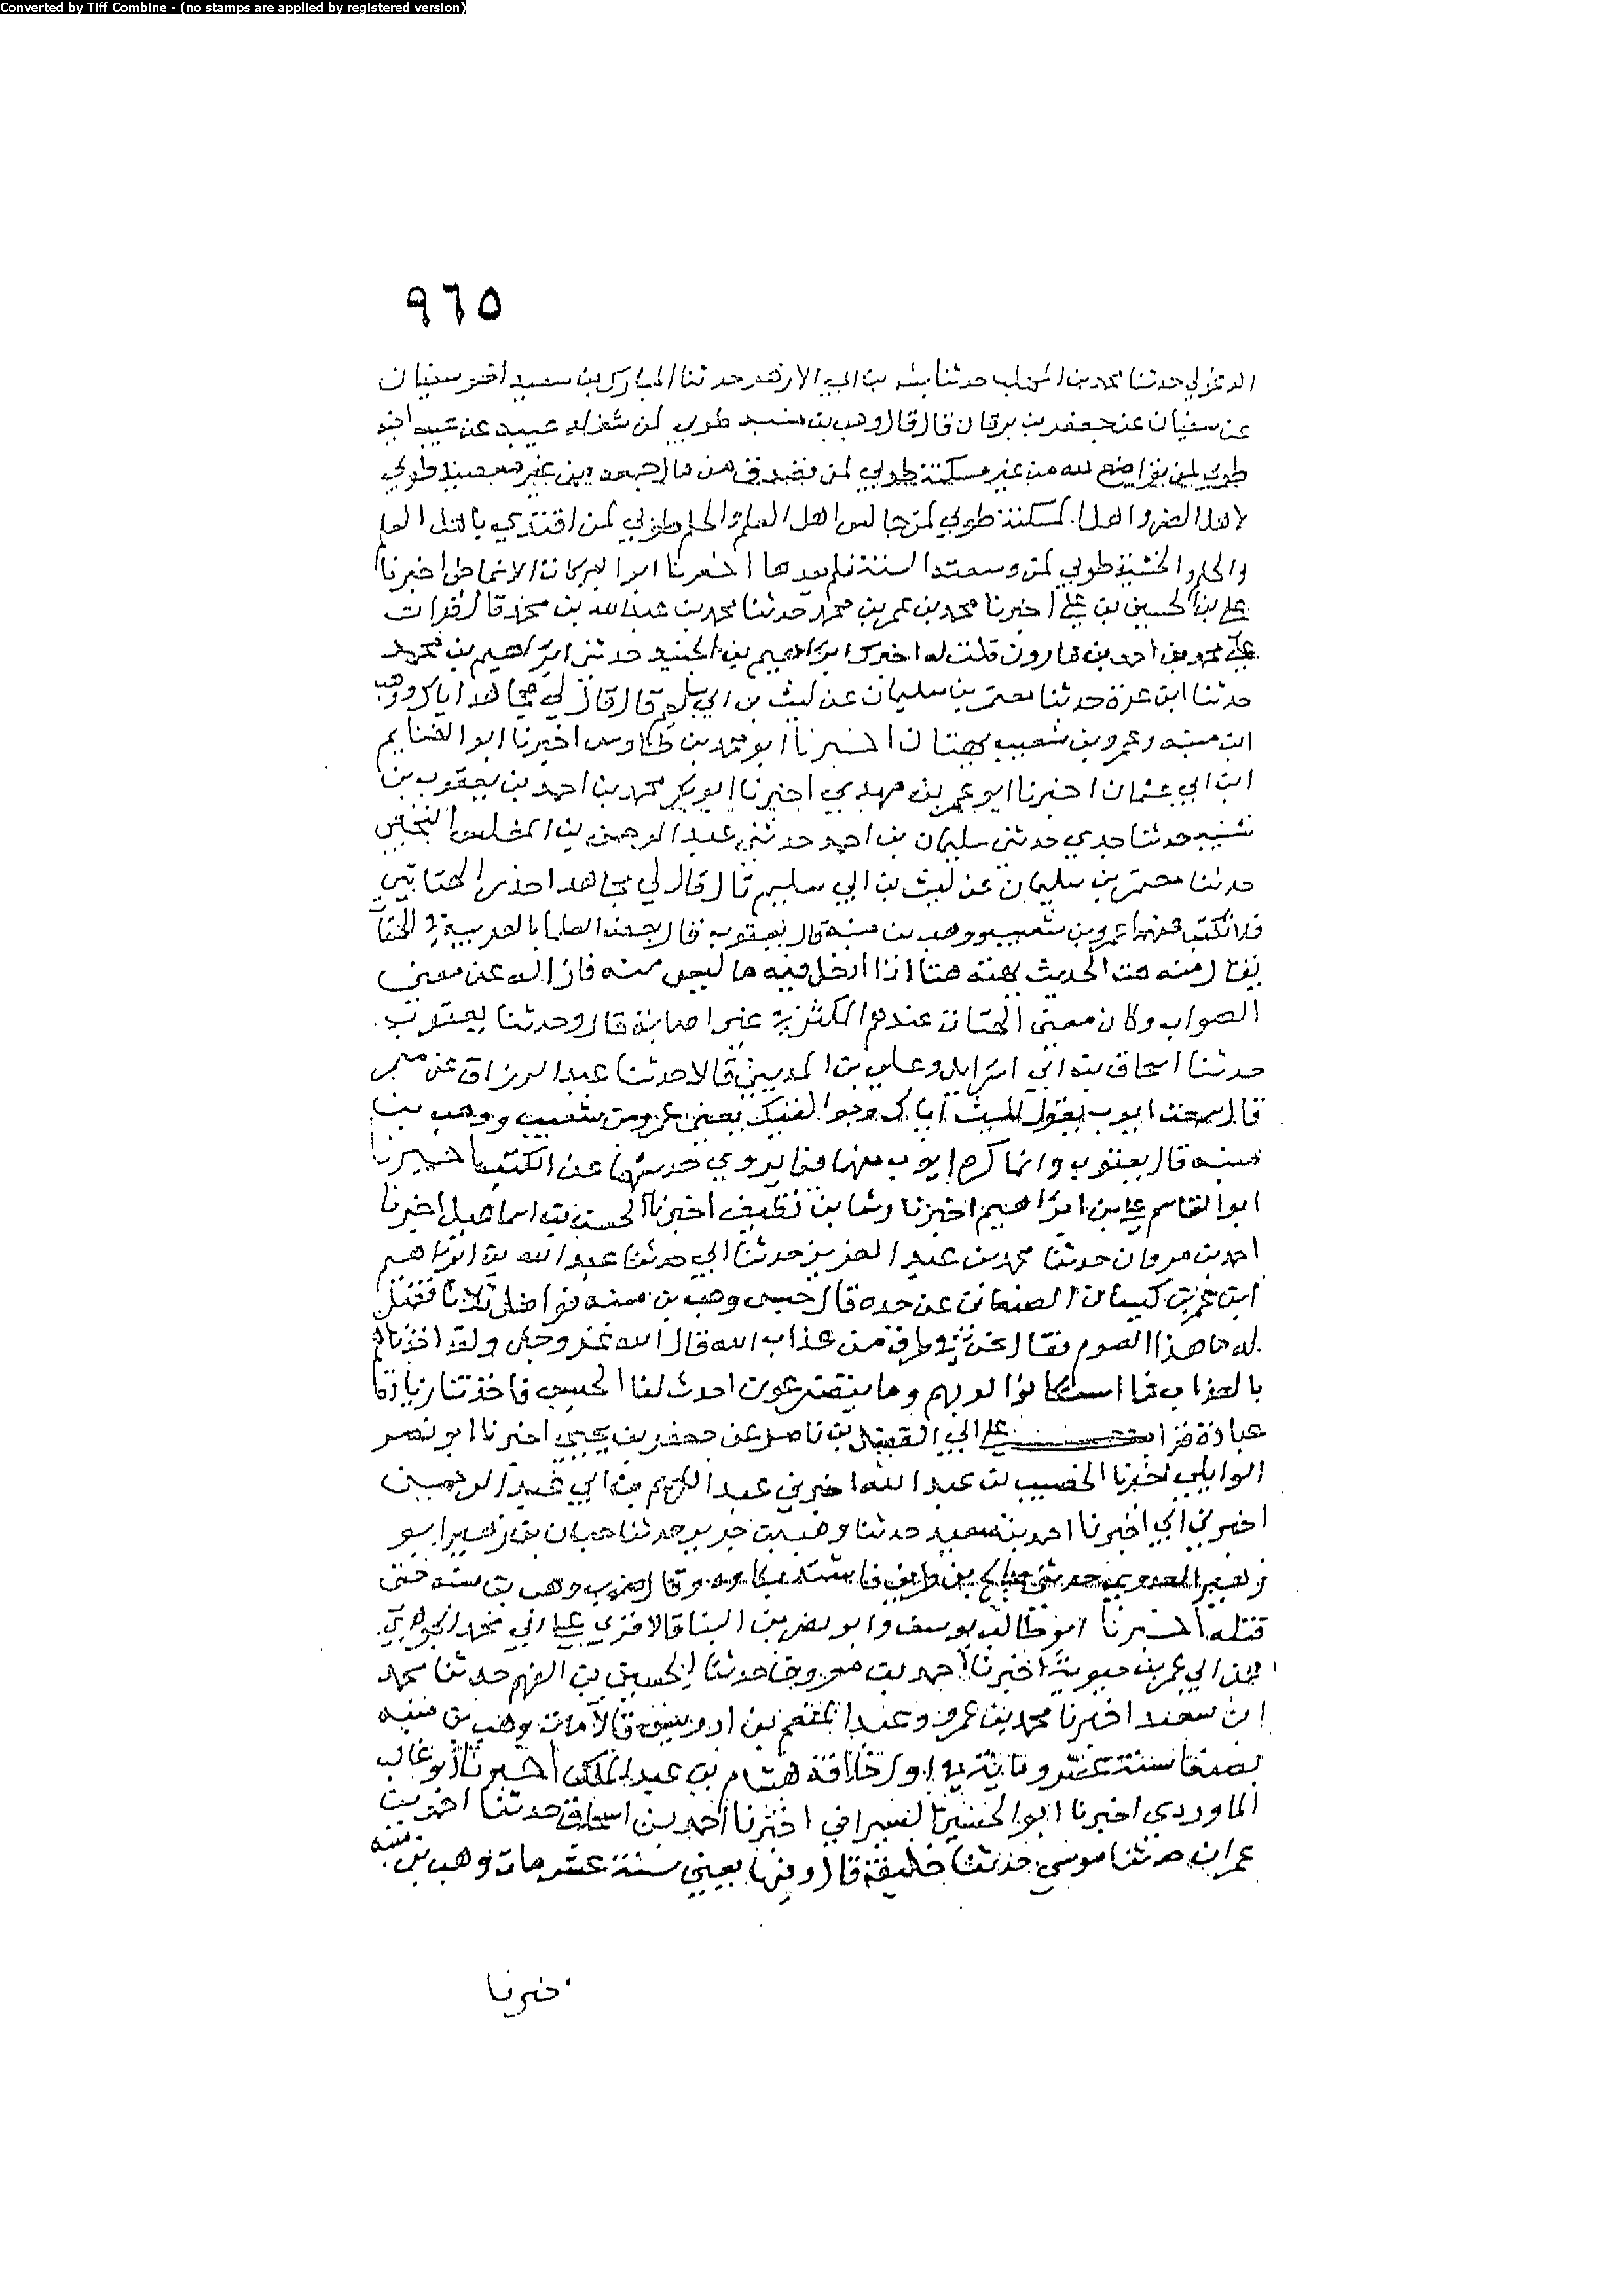 Converted by Tiff Combine - (no stamps are applied by registered version)
٩٦٥
الدغولي حدثنا محمد بن المهلب حدثنا بشر بن ابي الازهر حدثنا المبارك بن سعيد اخو سفيان
عن سفيان عن جعفر بن برقان قال قال وهب بن منبه طوبي لمن شغله عيبه عن عيب اخيه
طوبي لمن تواضع لله من غير مسكنة طوبي لمن تصدق من مال جمعه من غير معصية طوبي
لاهل الضر واهل المسكنة طوبي لمن جالس اهل العلم والحلم طوبي لمن اقتدي باهل العلم
والحلم والخشية طوبي لمن وسعته السنة فلم يعدها اخبرنا ابو البركات الانماطي اخبرنا
علي بن الحسين بن علي اخبرنا محمد بن عمر بن محمد حدثنا محمد بن عبد الله بن محمد قال قرات
علي محمد بن احمد بن هارون قلت له اخبرك ابراهيم بن الجنيد حدثني ابراهيم بن محمد
حدثنا ابن عرة حدثنا معتمر بن سليمان عن ليث بن ابي سليم قال قال لي مجاهد اياك ووهب
ابن منبه وعمرو بن شعيب اخبرنا ابو محمد بن طاوس اخبرنا ابو الغنايم
ابن ابي عثمان اخبرنا ابو عمر بن مهدي اخبرنا ابو بكر محمد بن احمد بن يعقوب بن
شيبه حدثنا جدي حدثني سليمان بن احمد حدثني عبد الرحمن بن المغلس
حدثنا معتمر بن سليمان عن ليث بن ابي سليم قال قال لي مجاهد احذر
فلا تكتب عنهما عمرو بن شعيب ووهب بن منبه قال يعقوب فقال بعض العلما بالعربية في
يقال منه هت الحديث يهته هتا اذا ادخل فيه ما ليس منه فازاله عن معني
الصواب وكان معني عندهم الكثرة في غير اصابة قال وحدثنا يعقوب
حدثنا اسحاق بن ابي اسرايل وعلي بن المديني قالا حدثنا عبد الرزاق عن معمر
قال سمعت ايوب يقول لليث اياك يعني عمرو بن شعيب ووهب بن
منبه قال يعقوب وانما كره ايوب منهما فيما يروي حديثهما عن الكتب اخبرنا
ابو القاسم علي بن ابراهيم اخبرنا رشا بن نظيف اخبرنا الحسن بن اسماعيل اخبرنا
احمد بن مروان حدثنا محمد بن عبد العزيز حدثنا ابي حدثنا عبد الله بن ابراهيم
ابن عمر بن كيسان الصنعاني عن جده قال حبس وهب بن منبه فواصل ثلاثا فقيل
له ما هذا الصوم فقال نحن في طرف من عذاب الله قال الله عز وجل ولقد اخذناهم
بالعذاب فما استكانوا لربهم وما يتضرعون احدث لنا الحبس فاحدثنا زيادة
عبادة قرات علي ابي الفضل بن ناصر عن جعفر بن يحيي اخبرنا ابو نصر
الوايلي اخبرنا الخصيب بن عبد الله اخبرني عبد الكريم بن ابي عبد الرحمن
اخبرني ابي اخبرنا احمد بن سعيد حدثنا وهب بن جرير حدثنا حبان بن زهير ابو
زهير العدوي حدثني صالح بن طريف وقال ضرب وهب بن منبه حتي
قتله اخبرنا ابو طالب يوسف وابو نصر بن البنا قالا قري علي ابي محمد الجوهري
عن ابي عمر بن حيوية اخبرنا احمد بن معروف حدثنا الحسين بن الفهم حدثنا محمد
ابن سعد اخبرنا محمد بن عمر وعبد المنعم بن ادريس قالا مات وهب بن منبه
بصنعا سنة عشر وماية في اول خلافة هشام بن عبد الملك اخبرنا ابو غالب
الماوردي اخبرنا ابو الحسن السيرافي اخبرنا احمد بن اسحاق حدثنا احمد بن
عمران حدثنا موسي حدثنا خليفة قال وفيها يعني سنة عشر مات وهب بن منبه
اخبرنا